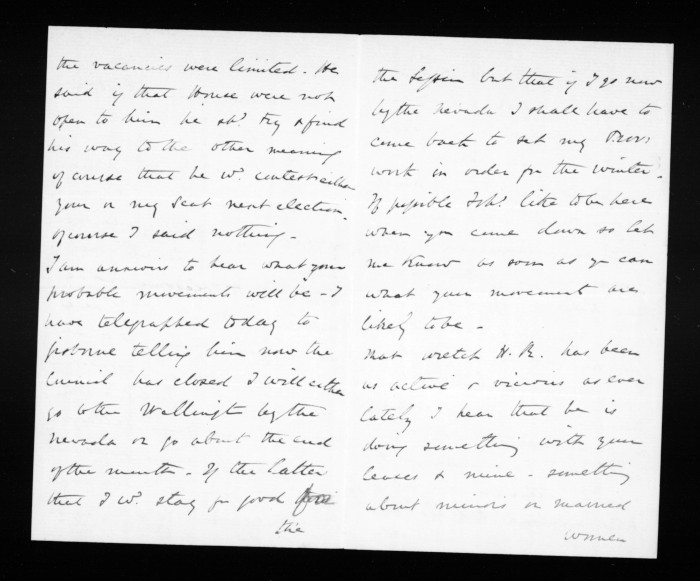 the vacancies were limited. He
said if that House were not
open to him he shd. try & find
his way to the other meaning
of course that he wd. contest either
your or my Seat next election.
Of course I said nothing -
I am anxious to hear what your
probable movements will be - I
have telegraphed today to
Gisborne telling him now the
Council has closed I will either
go to the Wellington by the
Nevada or go about the end
of the month - If the latter
that I wd. stay for good
the
the Session but that if I go now
by the Nevada I shall have to
come back to set my
work in order for the winter -
If possible I shd. like to be here
when you come down so let
me know as soon as you can
what your movement are
likely to be -
That wretch H. R. has been
as active & vicious as ever
lately I hear that he is
doing something with your
leases & mine - something
about minors or married
women